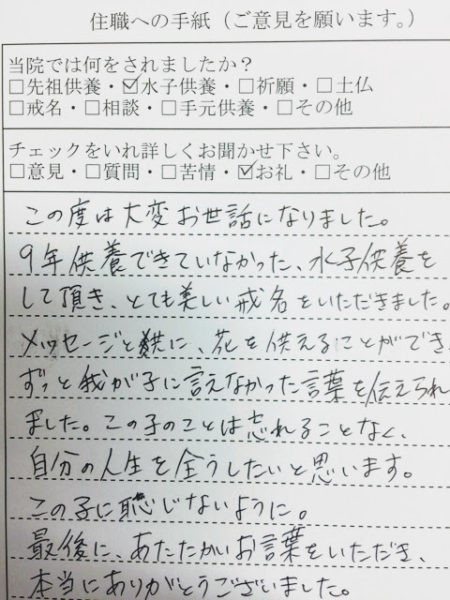 住職への手紙（ご意見を願います。）
当院では何をされましたか？
□先祖供養・☑水子供養・□祈願・□土仏
□戒名・□相談・□手元供養・□その他
チェックをいれ詳しくお聞かせ下さい。
□意見・□質問・□苦情・☑お礼・□その他
この度は大変お世話になりました。
9年供養できていなかった、水子供養を
して頂き、とても美しい戒名をいただきました。
メッセージと共に、花を供えることができ
ずっと我が子に言えなかった言葉を伝えられ
ました。この子のことは忘れることなく、
自分の人生を全うしたいと思います。
この子に恥じないように。
最後に、あたたかいお言葉をいただき、
本当にありがとうございました。